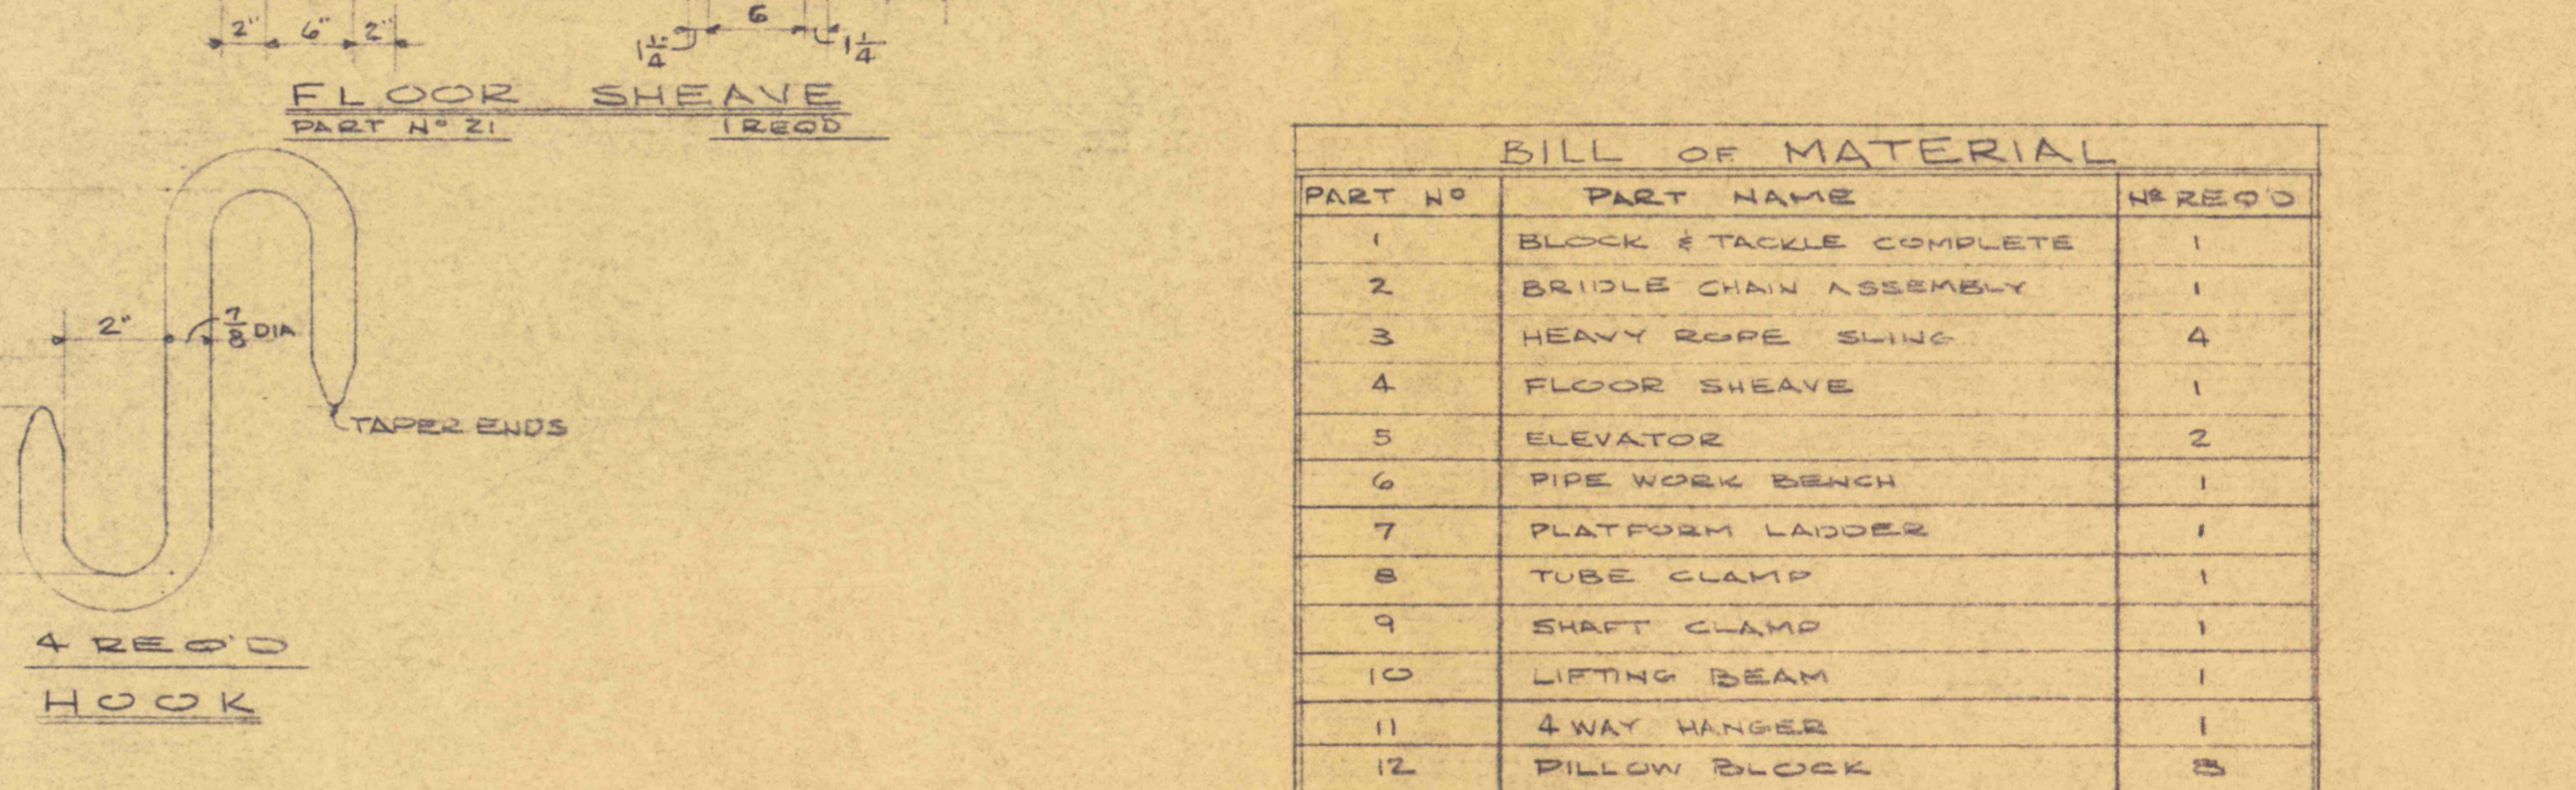 2" 6" 2"
1 1/4" 6 1 1/4
FLOOR SHEAVE
PART Nº 21 1 REQD
2" 7/8 DIA
TAPER ENDS
4 REQ'D
HOOK
BILL OF MATERIAL
PART Nº PART NAME Nº REQ'D
1 BLOCK & TACKLE COMPLETE 1
2 BRIDLE CHAIN ASSEMBLY 1
3 HEAVY ROPE SLING 4
4 FLOOR SHEAVE 1
5 ELEVATOR 2
6 PIPE WORK BENCH 1
7 PLATFORM LADDER 1
8 TUBE CLAMP 1
9 SHAFT CLAMP 1
10 LIFTING BEAM 1
11 4 WAY HANGER 1
12 PILLOW BLOCK 8